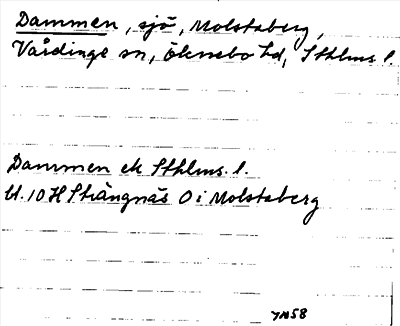 Dammen, sjö, Molstaberg,
Vårdinge sn, Öknebo hd, Sthlms l.
Dammen ek Sthlms. l.
bl. 10 H Strängnäs O i Molstaberg
7/1158